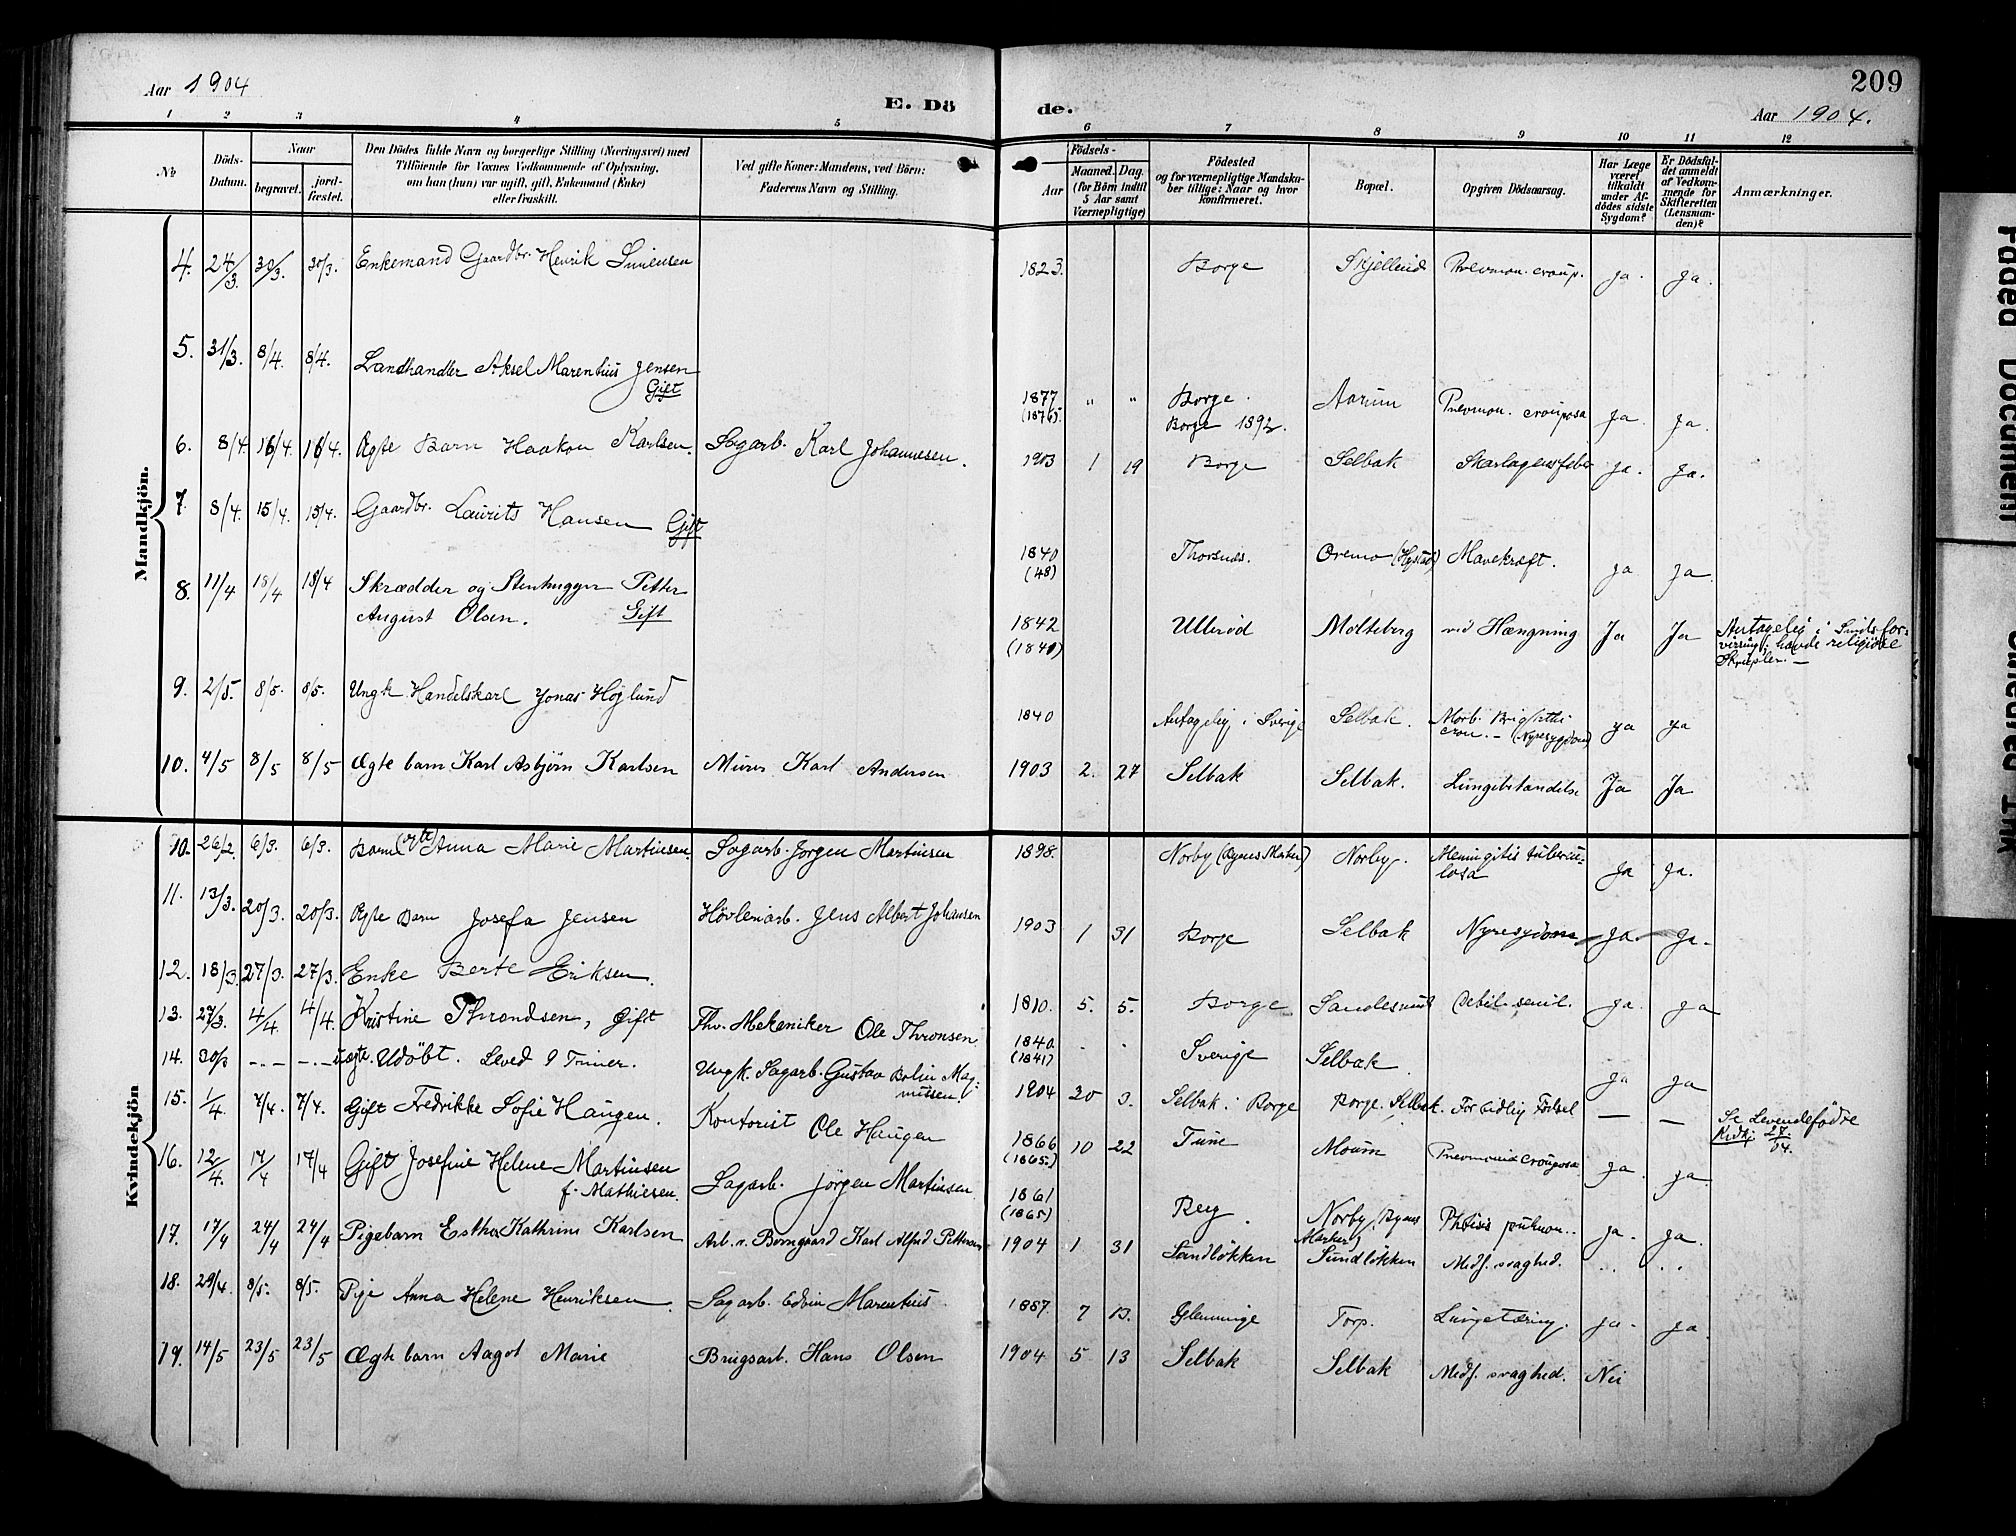 Aar 1904
E. Dö
de.
209
Aar 1904.
1 2 3 4 5 6 7 8 9 10 11 12
No
Döds-Datum.
Naar
begravet.
jord-fæstet.
Den Dödes fulde Navn og borgerlige Stilling (Næringsvei) med
Tilföiende for Voxnes Vedkommende af Oplysning,
om han (hun) var ugift, gift, Enkemand (Enke)
eller fraskilt.
Ved gifte Koner: Mandens, ved Börn:
Faderens Navn og Stilling.
Födsels-
Aar
Maaned. Dag.
(for Börn indtil
5 Aar samt
Værnepligtige)
Födested
og for værnepligtige Mandska-
ber tillige: Naar og hvor
konfirmeret.
Bopæl.
Opgiven Dödsaarsag.
Har Læge
været
tilkaldt
under Af-
dödes sidste
Sygdom?
Er Dödsfal-
det anmeldt
af Vedkom-
mende for
Skifteretten
(Lensman-
den)?
Anmærkninger.
Mandkjön.
4. 24/3 30/3. 30/3. Enkemand Gaardbr. Henrik 1823. Borge Pnevmon. croup. Ja. Ja.
5. 31/3. 8/4. 8/4. Landhandler Aksel Marentius Jensen
Gift
1877 (1876). " " Borge.
Borge 1892. Aarum Pnevmon. crouposa Ja. Ja.
6. 8/4. 16/4. 16/4. Ægte Barn Haakon Karlsen. Sagarb. Karl Johannesen. 1903 1 19 Borge Selbak Skarlagensfeber Ja. Ja.
7. 8/4. 15/4. 15/4. Gaardbr. Laurits Hansen Gift
1840 (48) Thorsnes. Oremo Mavekræft. Ja Ja.
8. 11/4 18/4 18/4 Skrædder og Stenhugger Petter
August Olsen. Gift
1842 Ullerød Molteberg ved Hængning Ja Ja Antagelig i Sindsfor-
virring; havde religiöse
Skrupler. —
9. 2/5. 8/5. 8/5. Ungk Handelskarl Jonas Höglund
1840 Antagelig i Sverige Selbak. Morb. Brightii
cron. — (Nyresygdom) Ja Ja
10. 4/5 8/5 8/5 Ægte barn Karl Asbjörn Karlsen Murer Karl Andersen 1903 2. 27 Selbak Selbak. Lungebetændelse Ja Ja
Kvindekjön
10. 26/2. 6/3. 6/3. Barn (ægte) Anna Marie Martinsen. Sagarb. Jörgen Martinsen 1898. Norby (Byens Marker) Norby. Meningitis tubercu-
losa Ja Ja.
11. 13/3. 20/3. 20/3. Ægte Barn Josefa Jensen Hövleriarb. Jens Albert Johansen 1903 1 31 Borge Selbak Nyresygdom Ja. Ja.
12. 18/3. 27/3. 27/3. Enke Berte Eriksen. 1810. 5. 5. Borge Sandesund Debil. senil. Ja. Ja
13. 27/3. 4/4 4/4. Kristine Throndsen, Gift Fhv. Mekaniker Ole Thronsen. 1840. (1841) . . Sverige Selbak. Ja Ja
14. 30/3 -.-.- -.- Uægte. Udöbt. Leved 9 Timer. Ungk. Sagarb. Gustav Bolin Mag-
nussen. 1904 30 3. Selbak i Borge Borge. Selbak. For tidlig Födsel — — Se Levendefödte
Kvdk. 27/04.
15. 1/4 7/4. 7/4. Gift Fredrikke Sofie Haugen. Kontorist Ole Haugen 1866 (1865.) 10 22 Tune Moum Pnevmonia crouposa Ja. Ja.
16. 12/4 17/4 17/4 Gift Josefine Helene Martinsen
f. Mathiesen. Sagarb. Jörgen Martinsen 1861 (1865) Berg. Norby (Byens
Marker) Phtisis pulmon.. Ja. Ja.
17. 17/4 24/4 24/4 Pigebarn Esther Kathrine Karlsen Arb. v. Bomgaard Karl Alfred Pettersen 1904 1 31 Sandlökken Sundlökken Medf. svaghed. . . . .
18. 29/4. 8/5. 8/5. Pige Anna Helene Henriksen. Sagarb. Edvin Marentius 1887. 7 13. Glemminge Torp. Lungetæring. Ja. Ja.
19. 14/5 23/5 23/5 Ægte barn Aagot Marie Brugsarb. Hans Olsen 1904 5 13 Selbak Selbak Medf. svaghed. Nei
Faded Document
Smeared Ink